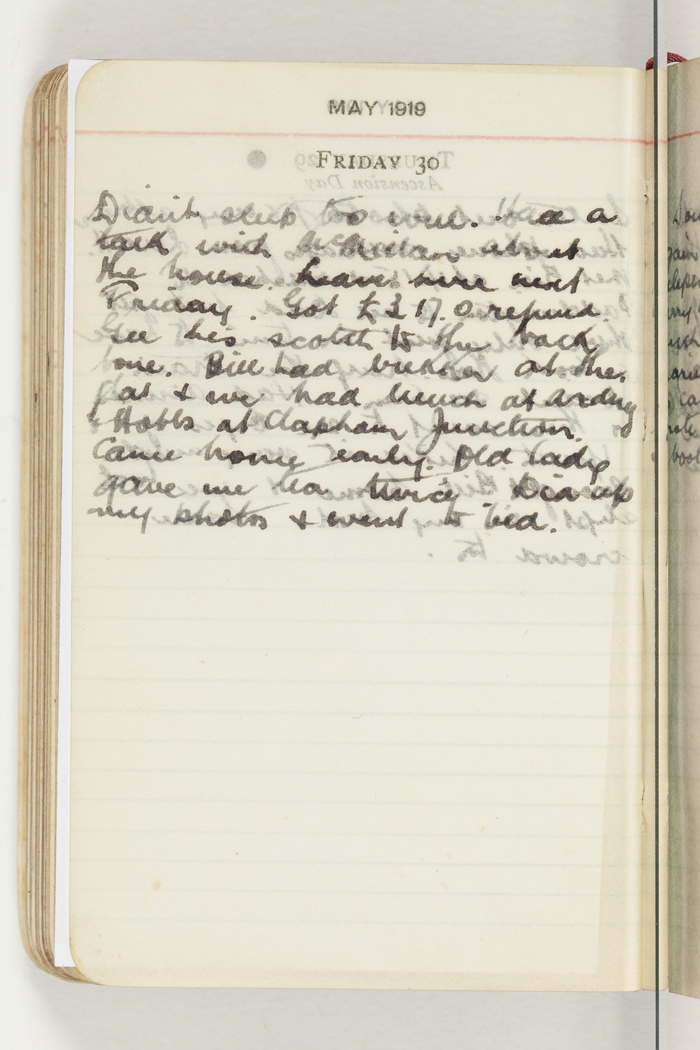 MAY 1919
FRIDAY 30
Didn't sleep too well. Had a
talk with McMillan about
the house. Leaves here next
Friday. Got £3.17.0 refund.
See his scotch to the back
one. Bill had brekker at the
flat & we had lunch at Arding
& Hobbs at Clapham Junction.
Came home early. Old lady
gave me tea twice. Did up
my photos & went to bed.